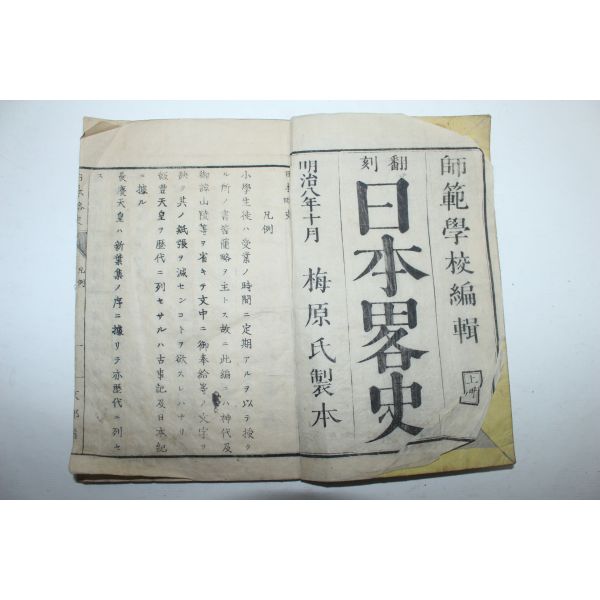 師範學校編輯
上冊
翻刻
日本畧史
明治八年十月
梅原氏製本
凡例
小學生徒ハ受業ノ時間ニ定期アルヲ以テ授ク
ル所ノ書旨簡略ヲ主トス故ニ此編ニハ神代及
御諱山陵等ヲ省キテ文中ニ御奉給等ノ文字ヲ
缺ク其ノ紙張ヲ減センコトヲ欲スレハナリ
飯豐天皇ヲ歴代ニ列セサルハ古事記及日本紀
ニ據ル
長慶天皇ハ新葉集ノ序ニ據リテ亦歴代ニ列セ
ス
凡例